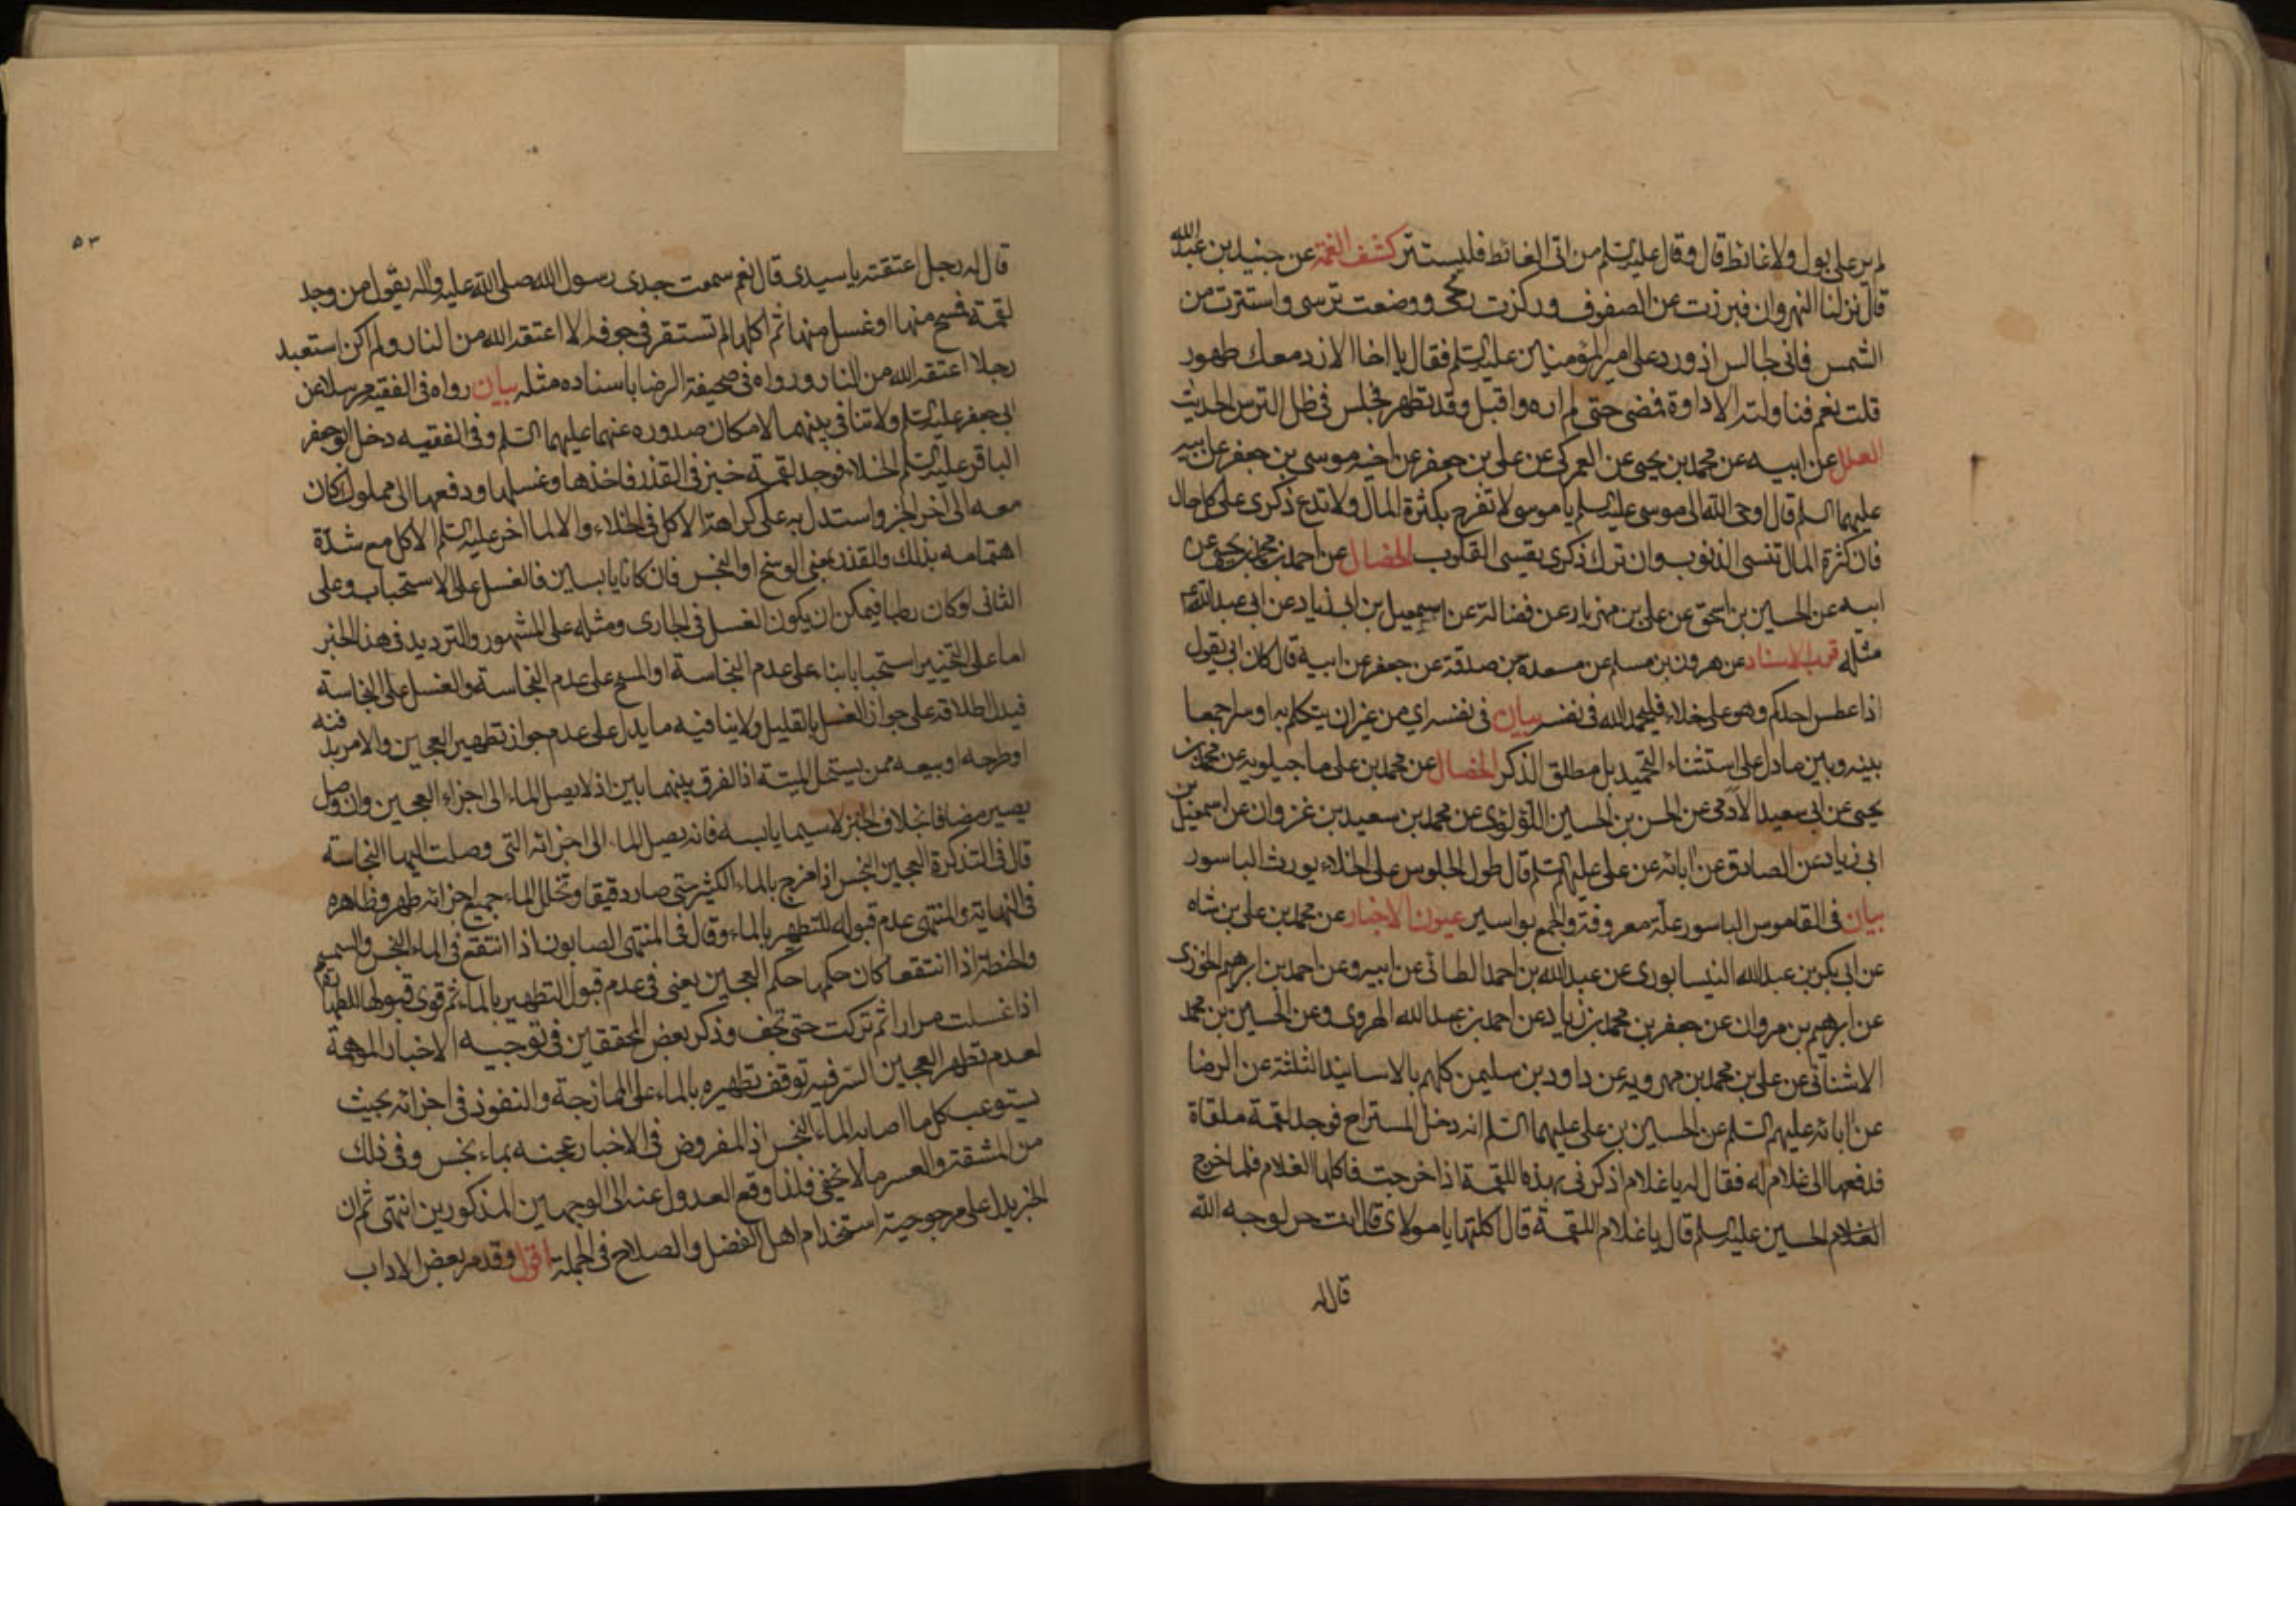 لم ير على بول ولا غائط قال وقال عليه السلم من اتى الغائط فليستتر كشف الغمة عن جنيد بن عبد الله
قال نزلنا النهروان فبرزت عن الصفوف وركزت رمحى ووضعت ترسى واستترت من
الشمس فانى جالس اذ ورد على امير المؤمنين عليه السلم فقال يا اخا الازد معك طهور
قلت نعم فناولته الاداوة فمضى حتى لم اره واقبل وقد تطهر فجلس فى ظل الترس الحديث
العلل عن ابيه عن محمد بن يحيى عن العمركى عن على بن جعفر عن اخيه موسى بن جعفر عن ابيه
عليهما السلم قال اوحى الله الى موسى عليه السلم يا موسى لا تفرح بكثرة المال ولا تدع ذكرى على كل حال
فان كثرة المال تنسى الذنوب وان ترك ذكرى يقسى القلوب الخصال عن احمد بن محمد بن يحيى عن
ابيه عن الحسين بن اسحق عن على بن مهزيار عن فضالة عن اسمعيل بن ابى زياد عن ابى عبد الله ع
مثله قرب الاسناد عن هرون بن مسلم عن مسعدة بن صدقة عن جعفر عن ابيه قال كان ابى يقول
اذا عطس احدكم وهو على خلاء فليحمد الله فى نفسه بيان فى نفسه اى من غير ان يتكلم به او سرا جمعا
بينه وبين ما دل على استثناء التحميد بل مطلق الذكر الخصال عن محمد بن على ماجيلويه عن محمد بن
يحيى عن ابى سعيد الآدمى عن الحسن بن الحسين اللؤلؤى عن محمد بن سعيد بن غزوان عن اسمعيل بن
ابى زياد عن الصادق عن ابائه عن على عليهم السلم قال طول الجلوس على الخلاء يورث الباسور
بيان فى القاموس الباسور علة معروفة والجمع بواسير عيون الاخبار عن محمد بن على بن شاه
عن ابى بكر بن عبد الله النيسابورى عن عبد الله بن احمد الطائى عن ابيه وعن احمد بن ابرهيم الخوزى
عن ابرهيم بن مروان عن جعفر بن محمد بن زياد عن احمد بن عبد الله الهروى وعن الحسين بن محمد
الاشنانى عن على بن محمد بن مهرويه عن داود بن سليمن كلهم بالاسانيد الثلثة عن الرضا
عن ابائه عليهم السلم عن الحسين بن على عليهما السلم انه دخل المستراح فوجد لقمة ملقاة
فدفعها الى غلام له فقال له يا غلام اذكرنى بهذه اللقمة اذا خرجت فاكلها الغلام فلما خرج
الغلام الحسين عليه السلم قال يا غلام اللقمة قال اكلتها يا مولاى قال انت حر لوجه الله
قال له
٥٣
قال له رجل اعتقته يا سيدى قال نعم سمعت جدى رسول الله صلى الله عليه واله يقول من وجد
لقمة فمسح منها او غسل منها ثم اكلها لم تستقر فى جوفه الا اعتقه الله من النار ولم اكن استعبد
رجلا اعتقه الله من النار ورواه فى صحيفة الرضا باسناده مثله بيان رواه فى الفقيه مرسلا عن
ابى جعفر عليه السلم ولا تنافى بينهما لامكان صدوره عنهما عليهما السلم وفى الفقيه دخل ابو جعفر
الباقر عليه السلم الخلاء فوجد لقمة خبز فى القذر فاخذها وغسلها ودفعها الى مملوك كان
معه الى آخر الخبر واستدل به على كراهة الاكل فى الخلاء والا لما اخر عليه السلم الاكل مع شدّة
اهتمامه بذلك والقذر يعنى الوسخ او النجس فان كانا يابسين فالغسل على الاستحباب وعلى
الثانى لو كان رطبا فيمكن ان يكون الغسل فى الجارى ومثله على المشهور والترديد فى هذا الخبر
اما على التخيير استحبابا بناء على عدم النجاسة او المسح على عدم النجاسة والغسل على النجاسة
فيدل اطلاقه على جواز الغسل بالقليل ولا ينافيه ما يدل على عدم جواز تطهير العجين والامر بدفنه
او طرحه او بيعه ممن يستحل الميتة اذ الفرق بينهما بين اذ لا يصل الماء الى اجزاء العجين وان وصل
يصير مضافا بخلاف الخبز لا سيما يابسه فانه يصل الماء الى اجزائه التى وصلت اليها النجاسة
قال فى التذكرة العجين النجس اذا مزج بالماء الكثير حتى صار دقيقا وتخلل الماء جميع اجزائه طهر وظاهره
فى النهاية والمنتهى عدم قبوله للتطهير بالماء وقال فى المنتهى الصابون اذا انتقع فى الماء النجس والسمسم
والحنطة اذا انتقعا كان حكمها حكم العجين يعنى فى عدم قبول التطهير بالماء ثم قوى قبولها للطهارة
اذا غسلت مرارا ثم تركت حتى تجف وذكر بعض المحققين فى توجيه الاخبار الموهمة
لعدم تطهر العجين السر فيه توقف تطهيره بالماء على الممازجة والنفوذ فى اجزائه بحيث
يستوعب كل ما اصابه الماء النجس اذ المفروض فى الاخبار عجنه بماء نجس وفى ذلك
من المشقة والعسر ما لا يخفى فلذا وقع العدول عنه الى الوجهين المذكورين انتهى ثم ان
الخبر يدل على مرجوحية استخدام اهل الفضل والصلاح فى الجملة اقول وقد مر بعض الاداب